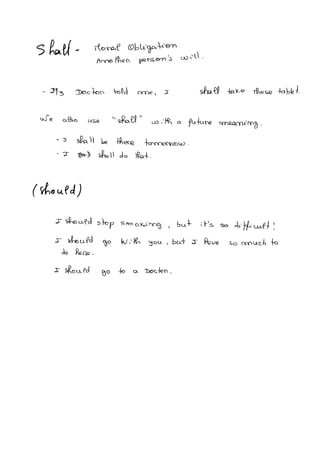 Shall - Moral Obligation
Annother person's will.
- My Doctor told me, I shall take these tablet.
We also use "shall" with a future meaning.
- I shall be there tommorrow.
- I shall do that.
(should)
I should stop smoking, but it's so difficult!
I should go with you, but I have so much to
do here.
I should go to a Doctor.